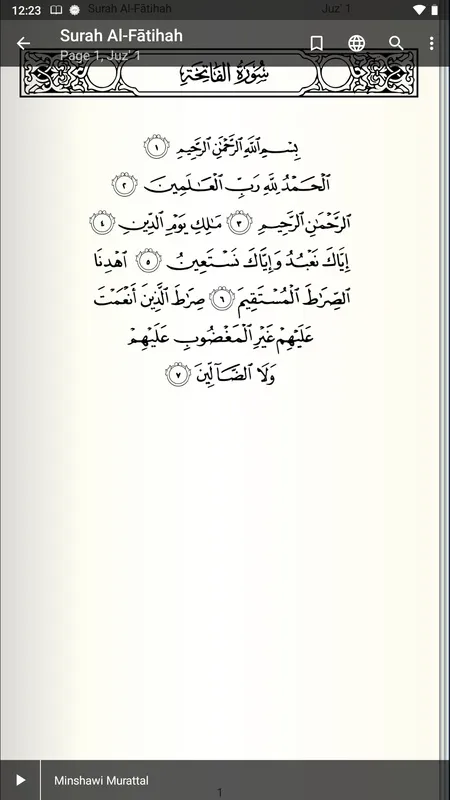 12:23
Surah Al-Fātihah
Juz' 1
Surah Al-Fātihah
Page 1, Juz' 1
سُورَةُ الفَاتِحَةِ
بِسْمِ ٱللَّهِ ٱلرَّحْمَٰنِ ٱلرَّحِيمِ ١
ٱلْحَمْدُ لِلَّهِ رَبِّ ٱلْعَٰلَمِينَ ٢
ٱلرَّحْمَٰنِ ٱلرَّحِيمِ ٣ مَٰلِكِ يَوْمِ ٱلدِّينِ ٤
إِيَّاكَ نَعْبُدُ وَإِيَّاكَ نَسْتَعِينُ ٥ ٱهْدِنَا
ٱلصِّرَٰطَ ٱلْمُسْتَقِيمَ ٦ صِرَٰطَ ٱلَّذِينَ أَنْعَمْتَ
عَلَيْهِمْ غَيْرِ ٱلْمَغْضُوبِ عَلَيْهِمْ
وَلَا ٱلضَّآلِّينَ ٧
Minshawi Murattal
1